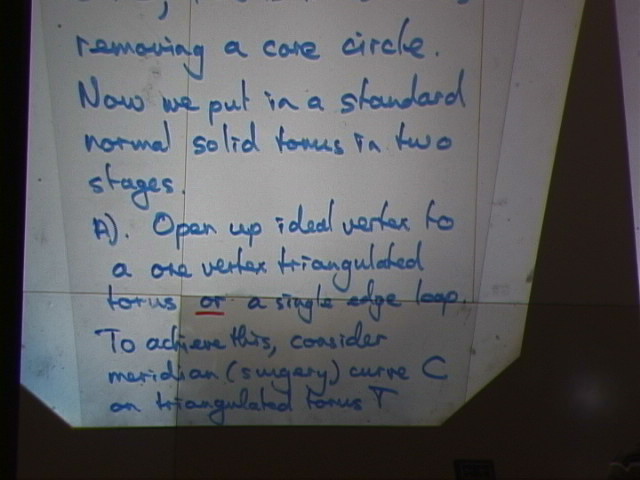 removing a core circle.
Now we put in a standard
normal solid torus in two
stages.
A). Open up ideal vertex to
a one vertex triangulated
torus or a single edge loop.
To achieve this, consider
meridian (surgery) curve C
on triangulated torus T